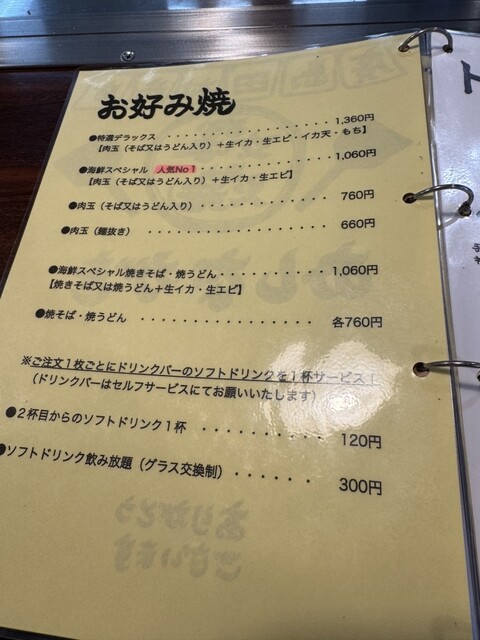 お好み焼
●特選デラックス ・・・・・・・・・・・・・・・・ 1,360円
【肉玉（そば又はうどん入り）＋生イカ・生エビ・イカ天・もち】
●海鮮スペシャル 人気No1 ・・・・・・・・・・・・ 1,060円
【肉玉（そば又はうどん入り）＋生イカ・生エビ】
●肉玉（そば又はうどん入り）・・・・・・・・・・・ 760円
●肉玉（麺抜き） ・・・・・・・・・・・・・・・・ 660円
●海鮮スペシャル焼きそば・焼うどん・・・・・・・・・・ 1,060円
【焼きそば又は焼うどん＋生イカ・生エビ】
●焼そば・焼うどん ・・・・・・・・・・・・・・ 各760円
※ご注文１枚ごとにドリンクバーのソフトドリンクを１杯サービス！
（ドリンクバーはセルフサービスにてお願いいたします）
●２杯目からのソフトドリンク１杯 ・・・・・・・・・・ 120円
●ソフトドリンク飲み放題（グラス交換制） ・・・・・・ 300円